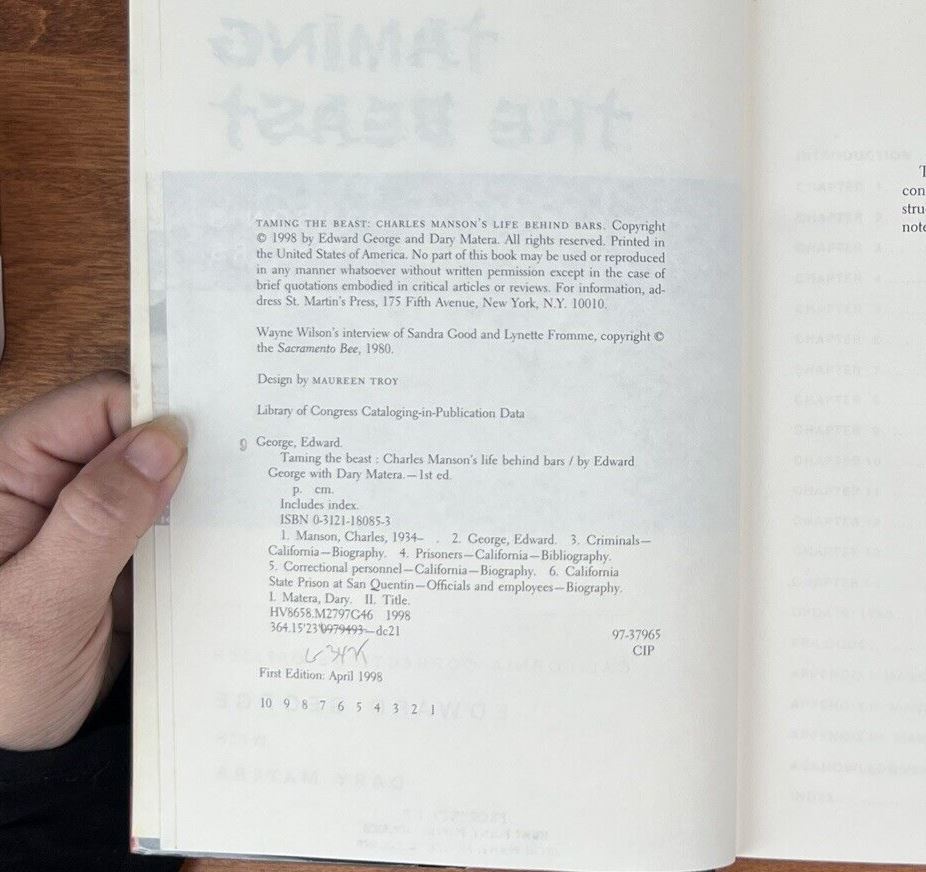 TAMING THE BEAST: CHARLES MANSON'S LIFE BEHIND BARS. Copyright
© 1998 by Edward George and Dary Matera. All rights reserved. Printed in
the United States of America. No part of this book may be used or reproduced
in any manner whatsoever without written permission except in the case of
brief quotations embodied in critical articles or reviews. For information, ad-
dress St. Martin's Press, 175 Fifth Avenue, New York, N.Y. 10010.
Wayne Wilson's interview of Sandra Good and Lynette Fromme, copyright ©
the Sacramento Bee, 1980.
Design by MAUREEN TROY
Library of Congress Cataloging-in-Publication Data
George, Edward.
Taming the beast : Charles Manson's life behind bars / by Edward
George with Dary Matera.—1st ed.
p. cm.
Includes index.
ISBN 0-3121-18085-3
1. Manson, Charles, 1934– . 2. George, Edward. 3. Criminals—
California—Biography. 4. Prisoners—California—Bibliography.
5. Correctional personnel—California—Biography. 6. California
State Prison at San Quentin—Officials and employees—Biography.
I. Matera, Dary. II. Title.
HV8658.M2797G46 1998
364.15'23'0979493—dc21
97-37965
CIP
First Edition: April 1998
10 9 8 7 6 5 4 3 2 1
TAMING
THE BEAST
DARY MATERA
INTRODUCTION
CHAPTER
con
stru
note